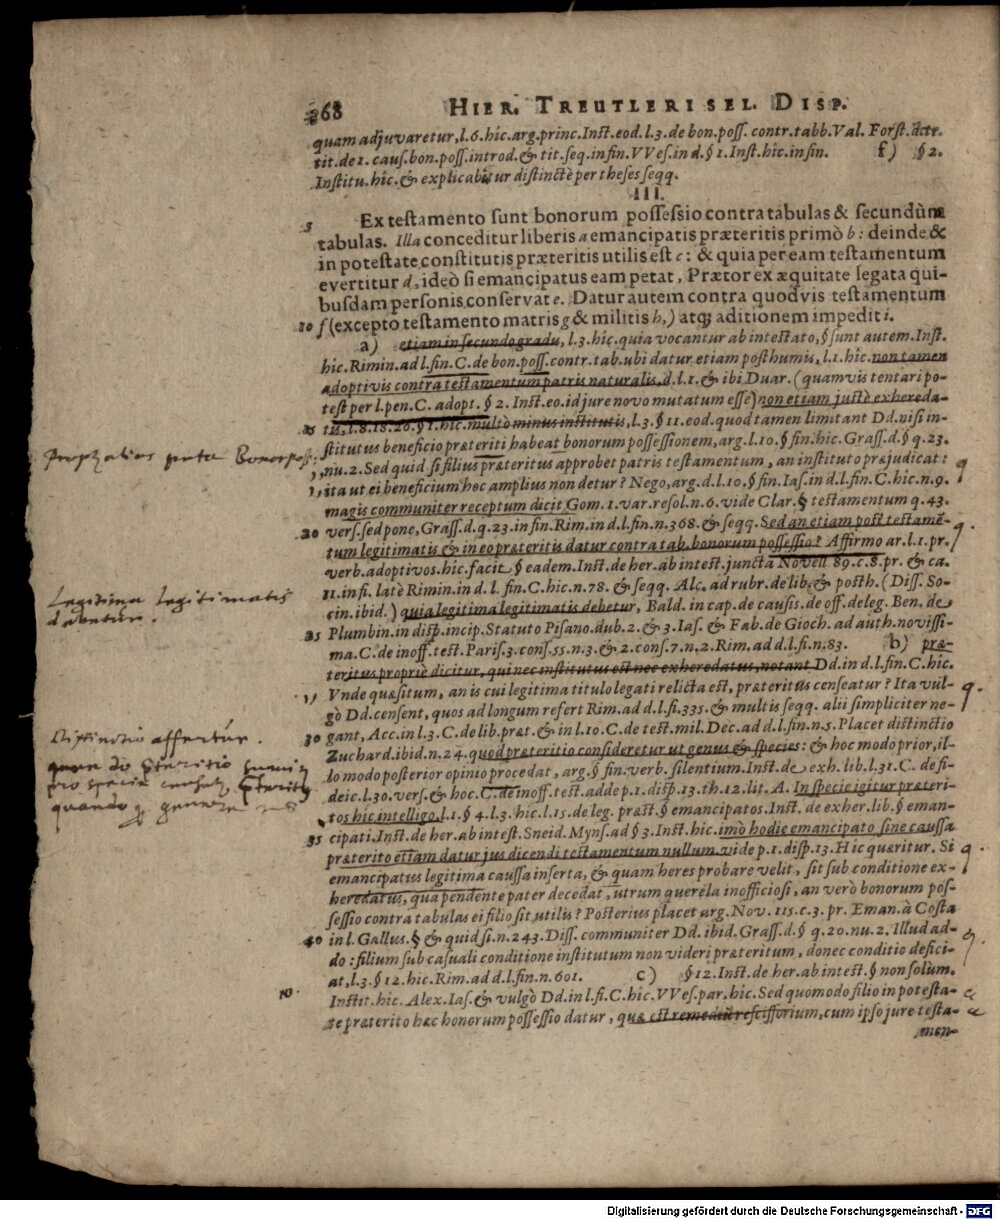 368 HIER. TREUTLERI SEL. DISP.
quam adjuvaretur, l.6. hîc. arg. princ. Inst. eod. l.3. de bon. poss. contr. tabb. Val. Forst. 
tit. de 1. caus. bon. poss. introd. & tit. seq. in fin. VVes. in d. § 1. Inst. hîc. in fin. f) § 2.
Institu. hîc. & explicabitur distinctè per theses seqq.
III.
5 Ex testamento sunt bonorum possessio contra tabulas & secundùm
tabulas. Illa conceditur liberis a emancipatis præteritis primò b: deinde &
in potestate constitutis præteritis utilis est c: & quia per eam testamentum
evertitur d, ideò si emancipatus eam petat, Prætor ex æquitate legata qui-
busdam personis conservat e. Datur autem contra quodvis testamentum
10 f (excepto testamento matris g & militis h,) atq; aditionem impedit i.
a) etiam in secundo gradu, l.3. hîc. quia vocantur ab intestato, § sunt autem. Inst.
hîc. Rimin. ad l. fin. C. de bon. poss. contr. tab. ubi datur etiam posthumis, l.1. hîc. non tamen
adoptivis contra testamentum patris naturalis, d. l.1. & ibi Duar. (quamvis tentari po-
test per l. pen. C. adopt. § 2. Inst. eo. id jure novo mutatum esse) non etiam justè exhereda-
15 tis, l.8.18.20. § 1. hîc. multò minus institutis, l.3. § 11. eod. quod tamen limitant Dd. nisi in-
stitutus beneficio præteriti habeat bonorum possessionem, arg. l.10. § fin. hîc. Grass. d. § q.23.
nu.2. Sed quid si filius præteritus approbet patris testamentum, an instituto præjudicat:
ita ut ei beneficium hoc amplius non detur? Nego, arg. d. l.10. § fin. Ias. in d. l. fin. C. hîc. n.9.
magis communiter receptum dicit Gom. 1. var. resol. n.6. vide Clar. § testamentum q.43.
20 vers. sed pone, Grass. d. q.23. in fin. Rim. in d. l. fin. n.368. & seqq. Sed an etiam post testamē-
tum legitimatis & in eo præteritis datur contra tab. bonorum possessio? Affirmo ar. l.1. pr.
verb. adoptivos. hîc. facit § eadem. Inst. de her. ab intest. juncta Novell. 89. c.8. pr. & ca.
11. infi. latè Rimin. in d. l. fin. C. hîc. n.78. & seqq. Alc. ad rubr. de lib. & posth. (Diss. So-
cin. ibid.) quia legitima legitimatis debetur, Bald. in cap. de causis. de off. deleg. Ben. de
25 Plumbin. in disp. incip. Statuto Pisano. dub.2. & 3. Ias. & Fab. de Gioch. ad auth. novissi-
ma. C. de inoff. test. Paris. 3. cons. 55. n.3. & 2. cons. 7. n.2. Rim. ad d. l. fi. n.83. b) præ-
teritus propriè dicitur, qui nec institutus est nec exheredatus, notant Dd. in d. l. fin. C. hîc.
Vnde quæsitum, an is cui legitima titulo legati relicta est, præteritus censeatur? Ita vul-
gò Dd. censent, quos ad longum refert Rim. ad d. l. fi. 335. & multis seqq. alii simpliciter ne-
30 gant, Acc. in l.3. C. de lib. præt. & in l.10. C. de test. mil. Dec. ad d. l. fin. n.5. Placet distinctio
Zuchard. ibid. n.24. quod præteritio consideretur ut genus & species: & hoc modo prior, il-
lo modo posterior opinio procedat, arg. § fin. verb. silentium. Inst. de exh. lib. l.31. C. de fi-
deic. l.30. vers. & hoc. C. de inoff. test. adde p.1. disp.13. th.12. lit. A. In specie igitur præteri-
tos hîc intelligo. l.1. § 4. l.3. hîc. l.15. de leg. præst. § emancipatos. Inst. de exher. lib. § eman-
35 cipati. Inst. de her. ab intest. Sneid. Myns. ad § 3. Inst. hîc. imò hodie emancipato sine caussa
præterito etiam datur jus dicendi testamentum nullum. vide p.1. disp.13. Hîc quæritur. Si
emancipatus legitima caussa inserta, & quam heres probare velit, sit sub conditione ex-
heredatus, qua pendente pater decedat, utrum querela inofficiosi, an verò bonorum pos-
sessio contra tabulas ei filio sit utilis? Posterius placet arg. Nov. 115. c.3. pr. Eman. à Costa
40 in l. Gallus. § & quid si. n.243. Diss. communiter Dd. ibid. Grass. d. § q.20. nu.2. Illud ad-
do: filium sub casuali conditione institutum non videri præteritum, donec conditio defici-
at, l.3. § 12. hîc. Rim. ad d. l. fin. n.601. c) § 12. Inst. de her. ab intest. § non solùm.
Instit. hîc. Alex. Ias. & vulgò Dd. in l. fi. C. hîc. VVes. par. hîc. Sed quomodo filio in potesta-
te præterito hæc bonorum possessio datur, quæ est remediū rescissorium, cum ipso jure testa-
men-
Legitima legitimatis
debetur.
Distinctio affertur.
Digitalisierung gefördert durch die Deutsche Forschungsgemeinschaft - DFG